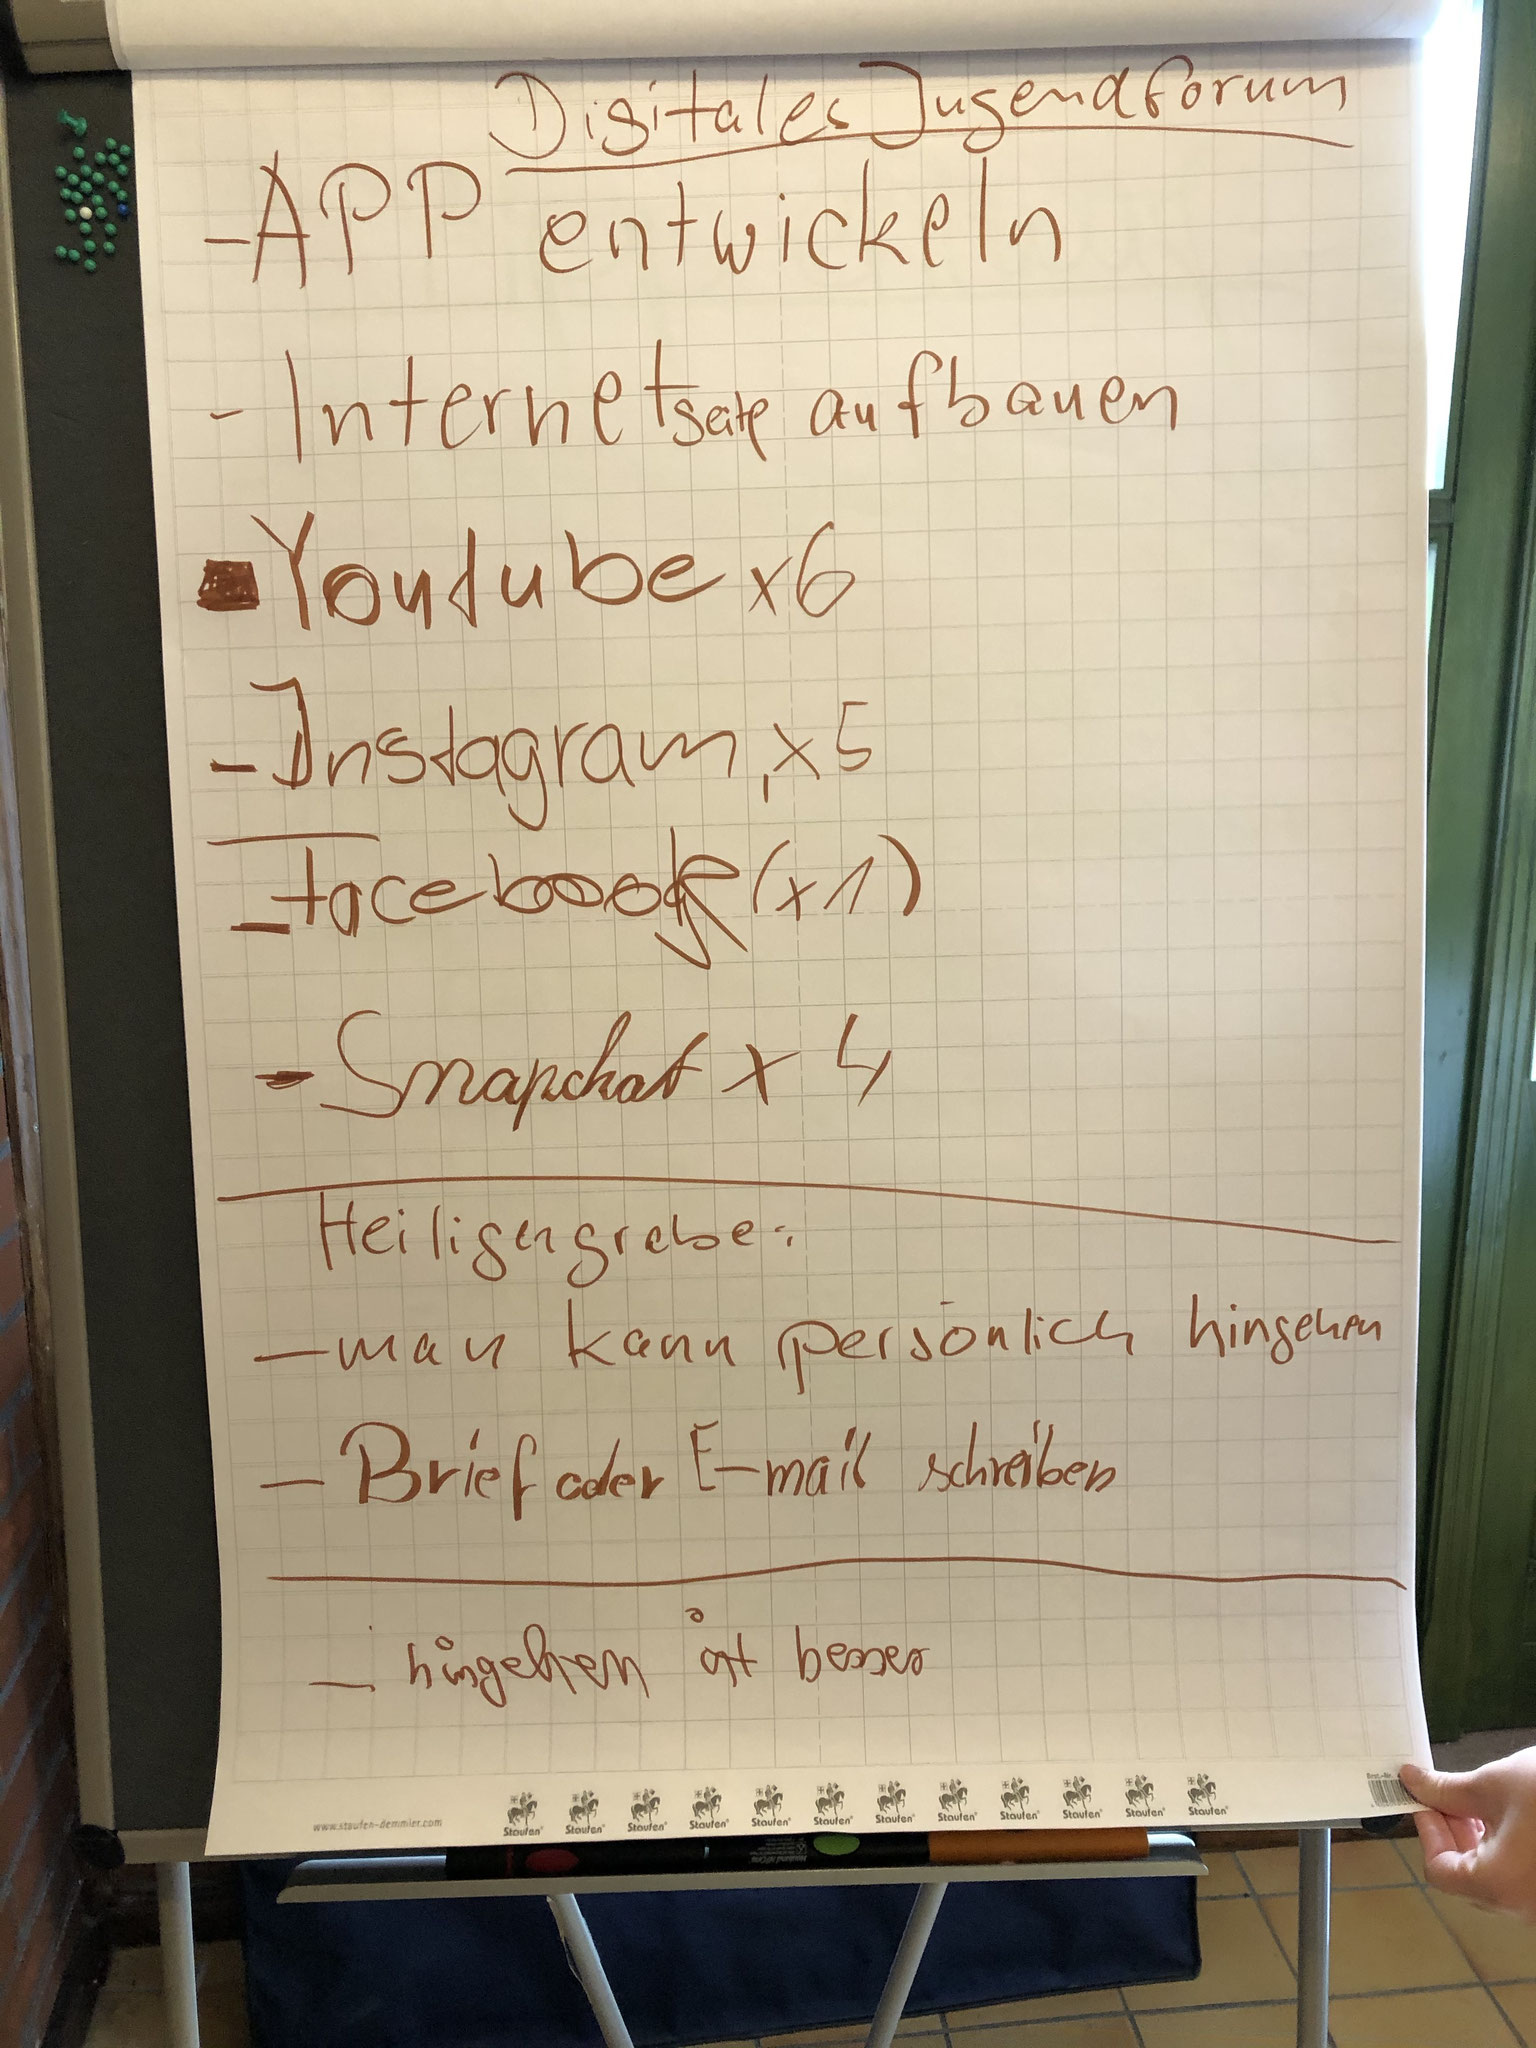 Digitales Jugendforum
- APP entwickeln
- Internetseite aufbauen
Youtube x6
- Instagram, x5
- facebook (x1)
- Snapchat x 4
Heiligengrabe:
- man kann persönlich hingehen
- Brief oder E-mail schreiben
- hingehen ist besser
www.staufen-demmler.com
Staufen® Staufen® Staufen® Staufen® Staufen® Staufen® Staufen® Staufen® Staufen® Staufen® Staufen® Staufen®